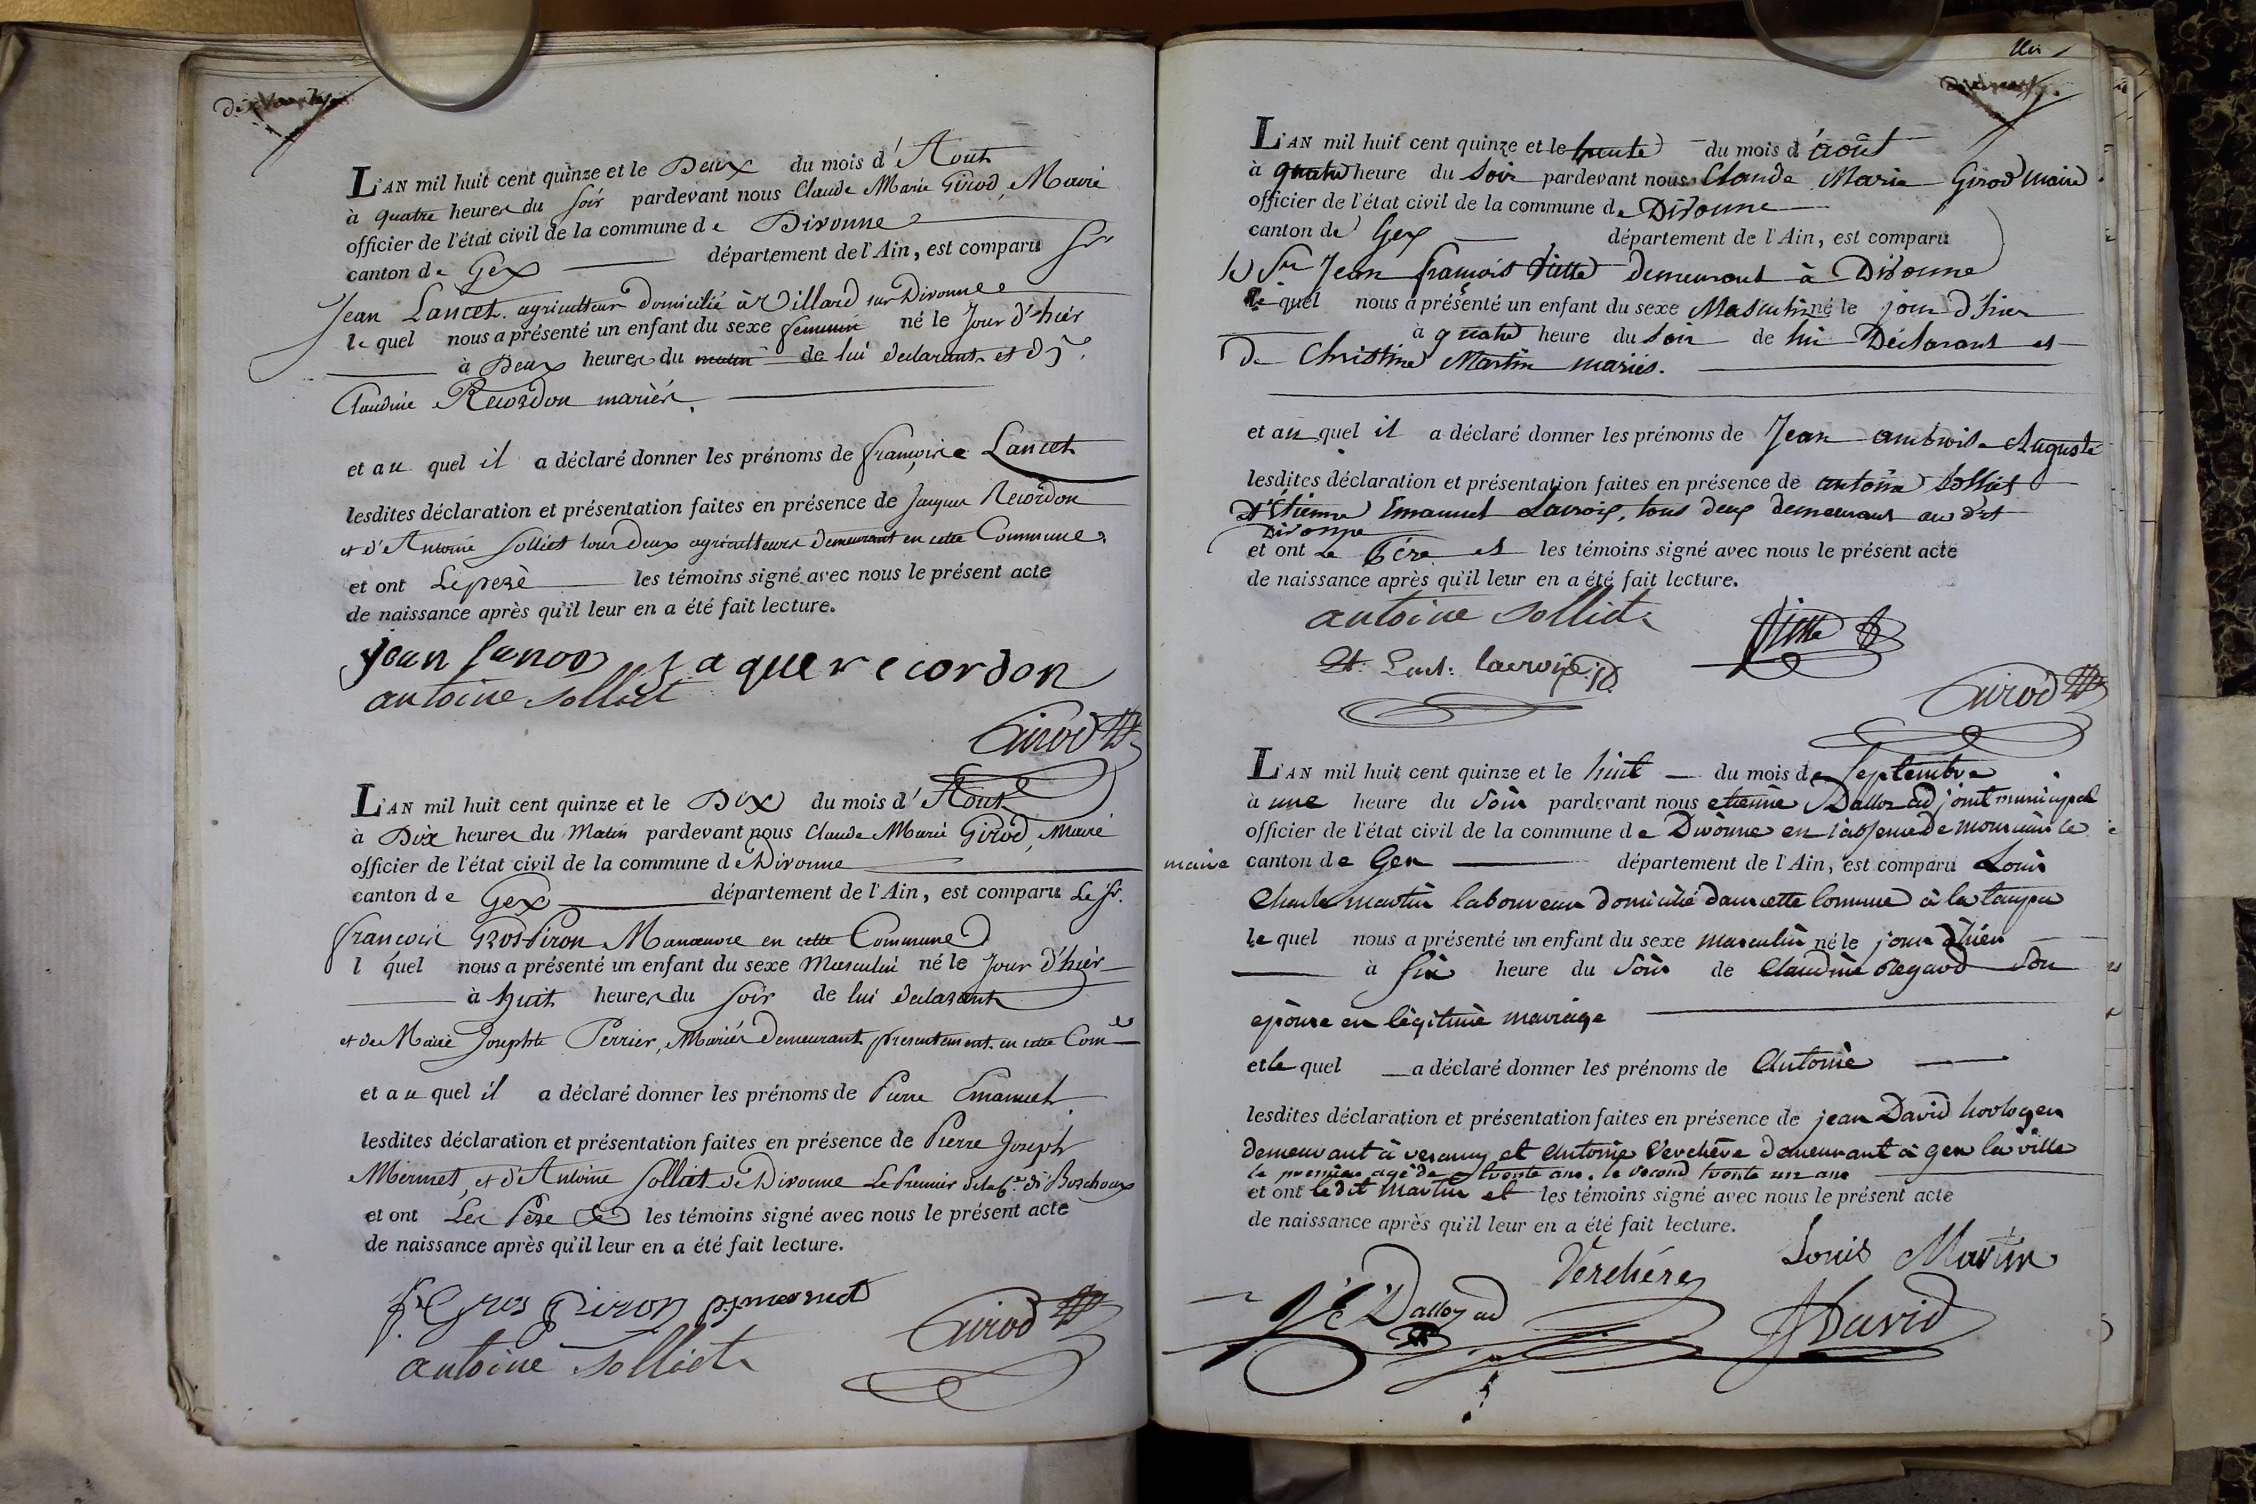 L'AN mil huit cent quinze et le Deux du mois d'Aout
à quatre heures du soir pardevant nous Claude Marie Girod, Maire
officier de l'état civil de la commune de Divonne
canton de Gex département de l'Ain, est comparu Sr
Jean Lancet agriculteur domicilié à Villard sur Divonne
lequel nous a présenté un enfant du sexe feminin né le Jour d'hier
à Deux heures du matin de lui declarant et de
Claudine Recordon mariés.
et au quel il a déclaré donner les prénoms de françoise Lancet
lesdites déclaration et présentation faites en présence de Jacques Recordon
et d'Antoine Solliet tous deux agriculteurs demeurant en cette Commune
et ont Le pere les témoins signé avec nous le présent acte
de naissance après qu'il leur en a été fait lecture.
jean jaque recordon
antoine Solliet
Girod
L'AN mil huit cent quinze et le Dix du mois d'Aout
à Dix heures du Matin pardevant nous Claude Marie Girod, Maire
officier de l'état civil de la commune de Divonne
canton de Gex département de l'Ain, est comparu Le Sr.
francois GrosPiron Manœuvre en cette Commune
lequel nous a présenté un enfant du sexe Masculin né le Jour d'hier
à huit heures du soir de lui declarant
et de Marie Josephte Perrier, Mariés Demeurant presentement en cette Com
et au quel il a déclaré donner les prénoms de Pierre Emanuel
lesdites déclaration et présentation faites en présence de Pierre Joseph
Mermet, et d'Antoine Solliet de Divonne Le Premier
et ont Les Père et les témoins signé avec nous le présent acte
de naissance après qu'il leur en a été fait lecture.
fs Gros Piron pj mermet
Girod
antoine Solliet
L'AN mil huit cent quinze et le trente du mois d'août
à quatre heure du soir pardevant nous Claude Marie Girod Maire
officier de l'état civil de la commune de Divonne
canton de Gex département de l'Ain, est comparu
le Sr Jean françois demeurant à Divonne
le quel nous a présenté un enfant du sexe Masculin né le jour d'hier
à quatre heure du soir de lui Déclarant et
de Christine Martin mariés.
et au quel il a déclaré donner les prénoms de Jean ambroise Auguste
lesdites déclaration et présentation faites en présence de antoine Solliet
et Etienne Emanuel Lacroix, tous deux demeurant au dit
Divonne
et ont Le Père et les témoins signé avec nous le présent acte
de naissance après qu'il leur en a été fait lecture.
antoine Solliet
Et. Lacroix
Girod
L'AN mil huit cent quinze et le huit du mois de Septembre
à une heure du soir pardevant nous etienne Dalloz adjoint municipal
officier de l'état civil de la commune de Divonne en l'absence de monsieur le
maire canton de Gex département de l'Ain, est comparu Louis
Charle martin laboureur domicilié dans cette comune à la
le quel nous a présenté un enfant du sexe masculin né le jour d'hier
à six heure du soir de Claudine Regard son
epouse en légitime mariage
et le quel a déclaré donner les prénoms de Antoine
lesdites déclaration et présentation faites en présence de jean David horloger
demeurant à et Antoine Verchère demeurant à gex la ville
le premier agé de trente ans, le second trente un ans
et ont ledit martin et les témoins signé avec nous le présent acte
de naissance après qu'il leur en a été fait lecture.
Verchére Louis Martin
Dalloz ad David